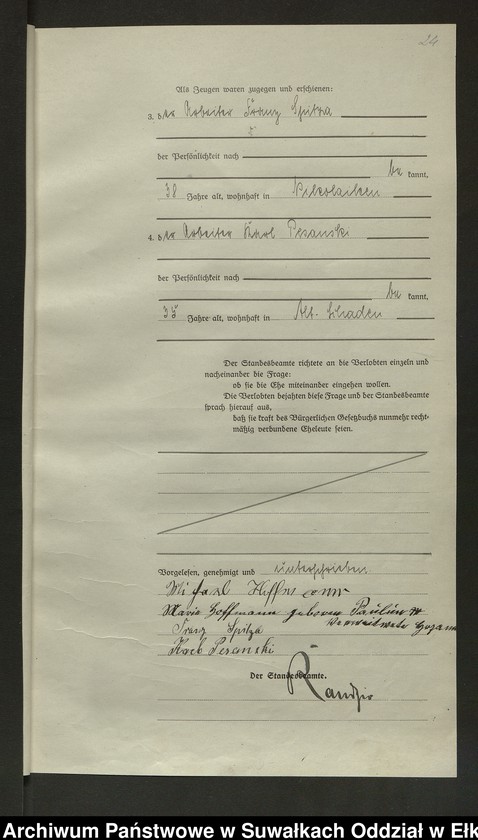 24
Als Zeugen waren zugegen und erschienen:
3. der Arbeiter Franz Spitza
der Persönlichkeit nach
be kannt,
38 Jahre alt, wohnhaft in Nikolaiken
4. der Arbeiter Karl Pesanski
der Persönlichkeit nach
be kannt,
35 Jahre alt, wohnhaft in Alt-
Der Standesbeamte richtete an die Verlobten einzeln und
nacheinander die Frage:
ob sie die Ehe miteinander eingehen wollen.
Die Verlobten bejahten diese Frage und der Standesbeamte
sprach hierauf aus,
daß sie kraft des Bürgerlichen Gesetzbuchs nunmehr recht-
mäßig verbundene Eheleute seien.
Vorgelesen, genehmigt und unterschrieben
Hoffmann
Marie Hoffmann geboren
verwitwete
Franz Spitza
Karl Pesanski
Der Standesbeamte.
Archiwum Państwowe w Suwałkach Oddział w Ełk